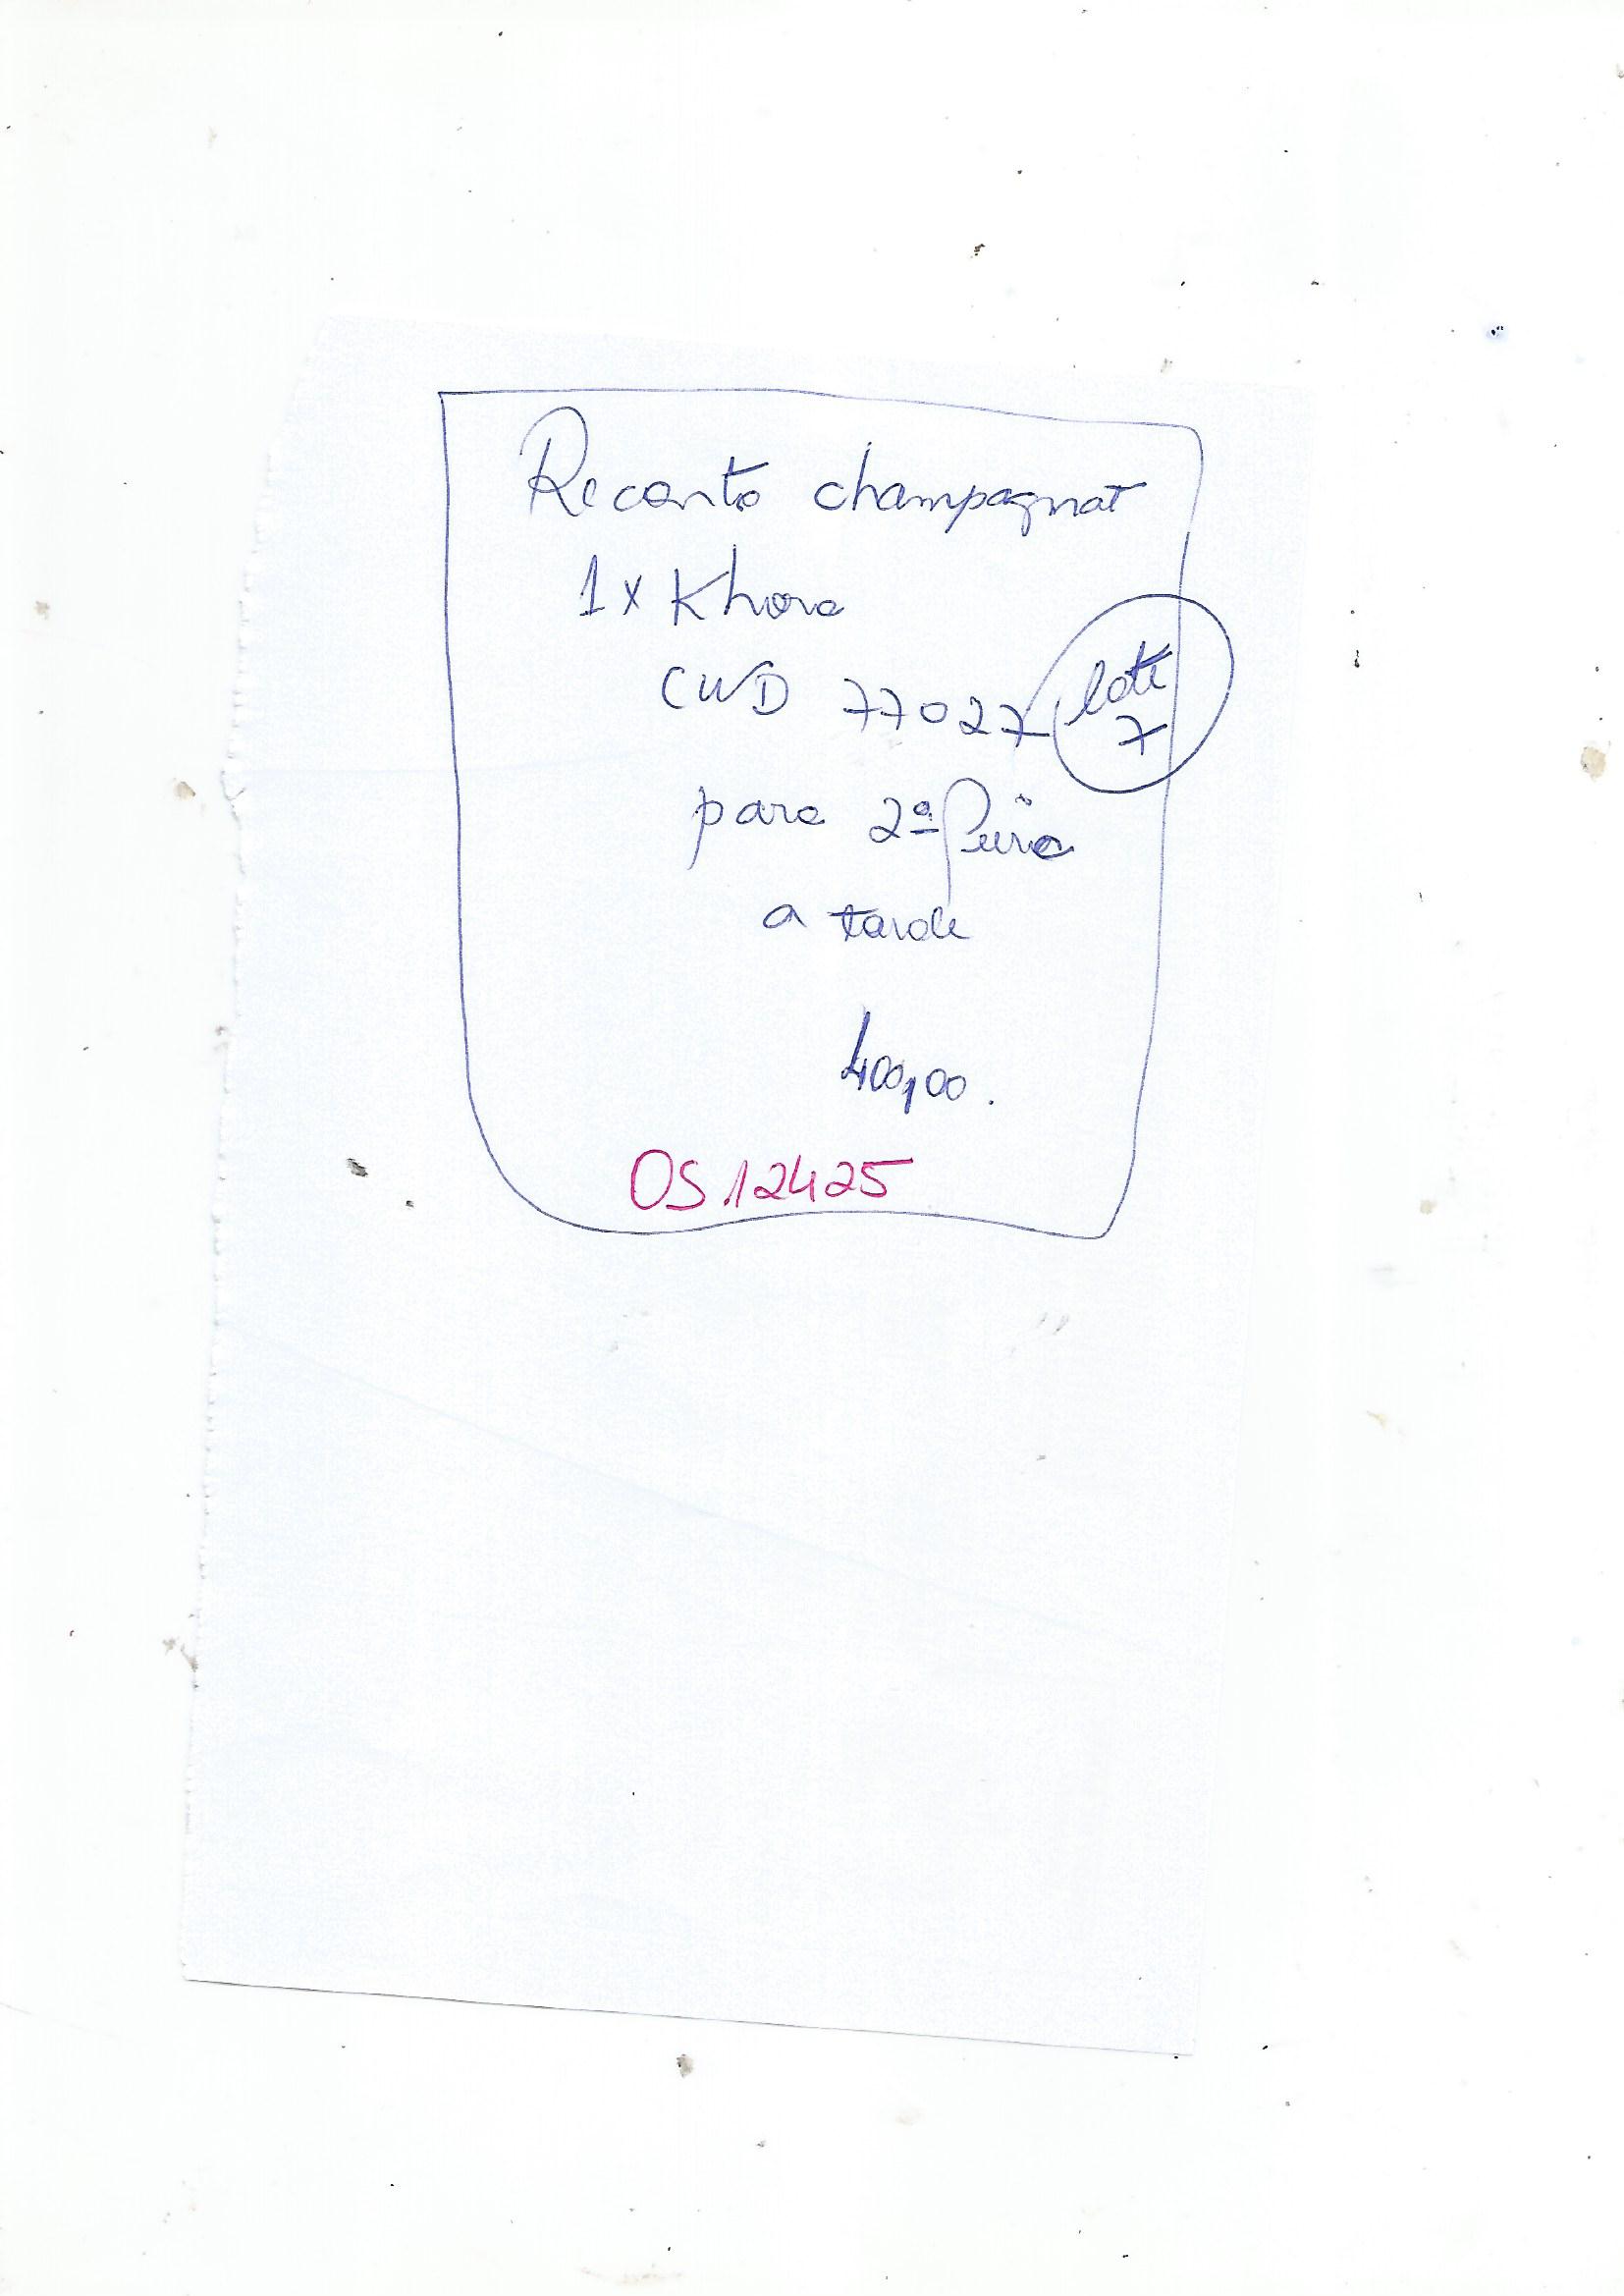 Recanto champagnat
1x Khora
CWD 77027
lote
7
para 2ª feira
a tarde
400,00.
OS.12425